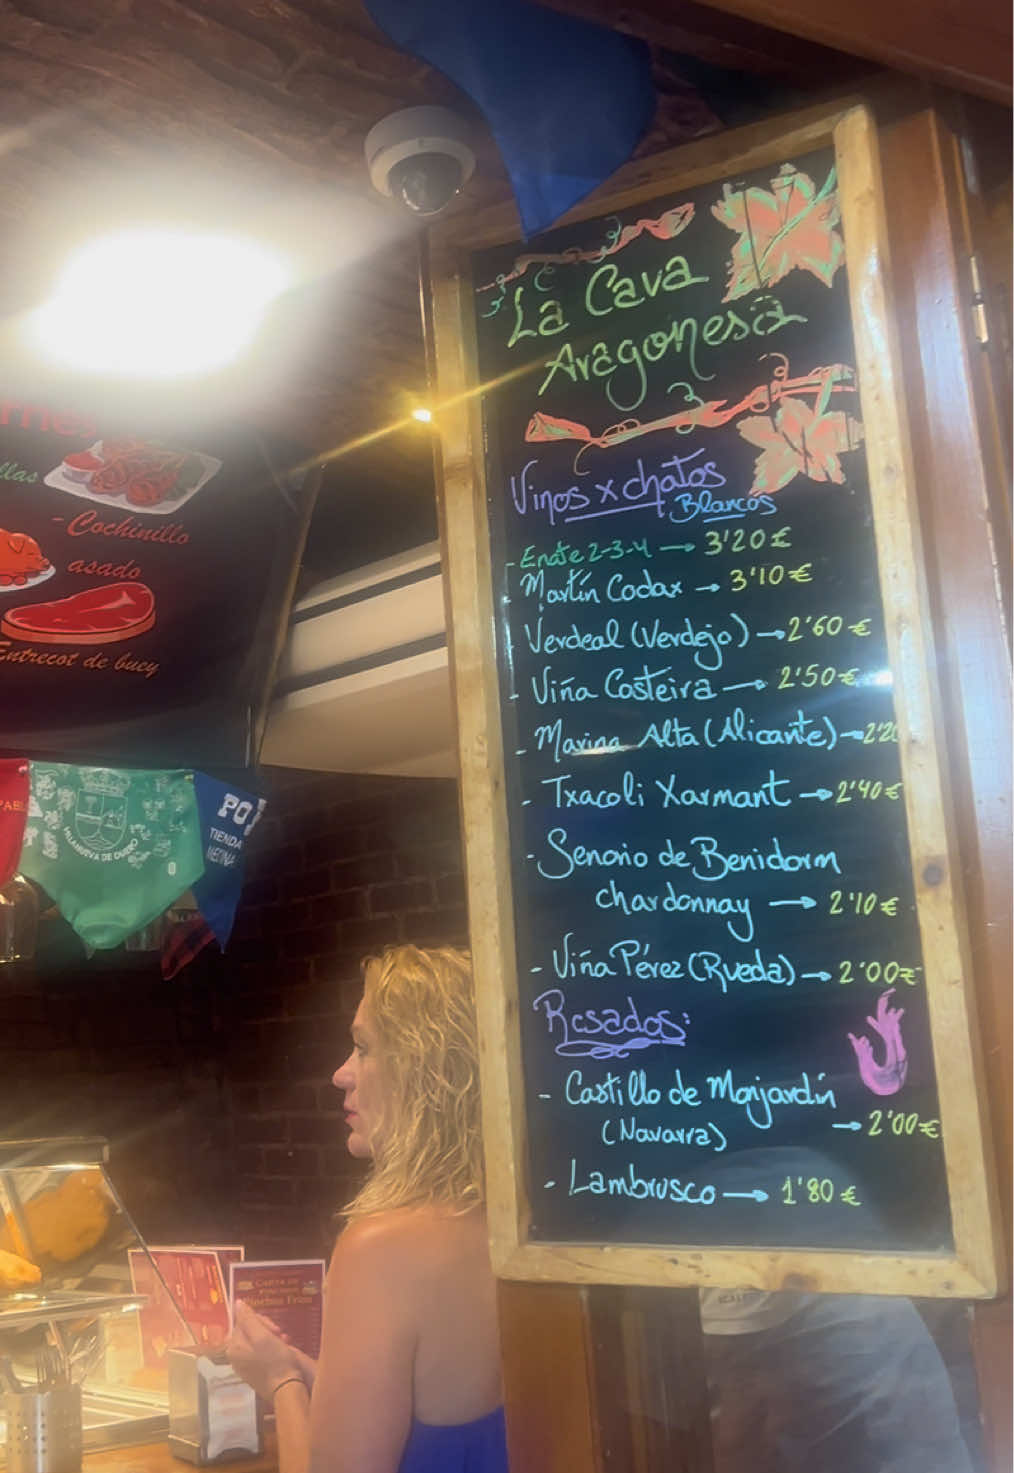 La Cava
Aragonesa
Vinos x chatos
Blancos
- Enate 2-3-4 → 3'20 €
- Martín Codax → 3'10 €
- Verdeal (Verdejo) → 2'60 €
- Viña Costeira → 2'50 €
- Marina Alta (Alicante) → 2'20
- Txacoli Xarmant → 2'40 €
- Senorio de Benidorm
chardonnay → 2'10 €
- Viña Pérez (Rueda) → 2'00 €
Rosados:
- Castillo de Monjardín
(Navarra) → 2'00 €
- Lambrusco → 1'80 €
- Cochinillo
asado
Entrecot de buey
VILLANUEVA DE DUERO
TIENDA
CARTA DE